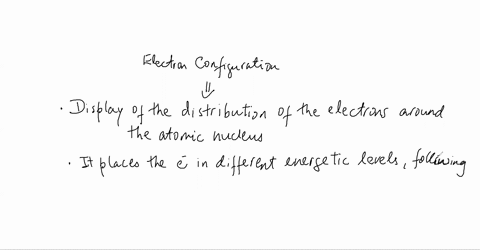 Electron Configuration
⇓
· Display of the distribution of the electrons around
the atomic nucleus
· It places the ē in different energetic levels, following